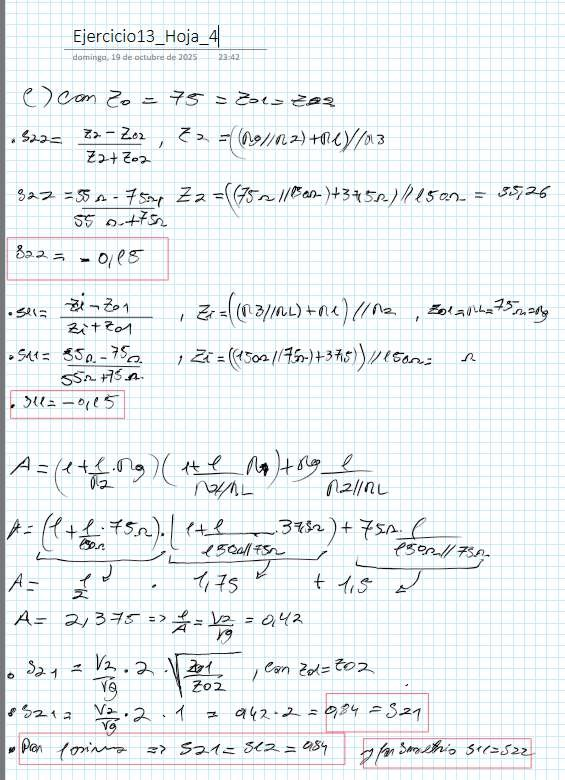 Ejercicio13_Hoja_4
domingo, 19 de octubre de 2025 23:42
c) Con Z0 = 75 = Z01 = Z02
• S22 = (Z2 - Z02)/(Z2 + Z02) , Z2 = ((Rg//R2) + R1)//R3
S22 = (55Ω - 75Ω)/(55Ω + 75Ω) , Z2 = ((75Ω//150Ω) + 37,5Ω)//150Ω = 35,26
S22 = - 0,15
• S11 = (Zi - Z01)/(Zi + Z01) , Zi = ((R3//RL) + R1)//R2 , Z01 = RL = 75Ω = Rg
• S11 = (55Ω - 75Ω)/(55Ω + 75Ω) , Zi = ((150Ω//75Ω) + 37,5)//150Ω = Ω
• S11 = - 0,15
A = (1 + 1/R2 · Rg)(1 + 1/(R2//RL) R1) + Rg 1/(R2//RL)
A = (1 + 1/150Ω · 75Ω) · (1 + 1/(150//75Ω) · 37,5Ω) + 75Ω · 1/(150Ω//75Ω)
A = 1/2 · 1,75 + 1,5
A = 2,375 => 1/A = V2/Vg = 0,42
• S21 = V2/Vg · 2 · √(Z01/Z02) , con Z01 = Z02
• S21 = V2/Vg · 2 · 1 = 0,42 · 2 = 0,84 = S21
• Por => S21 = S12 = 0,84 y por Simetría S11 = S22